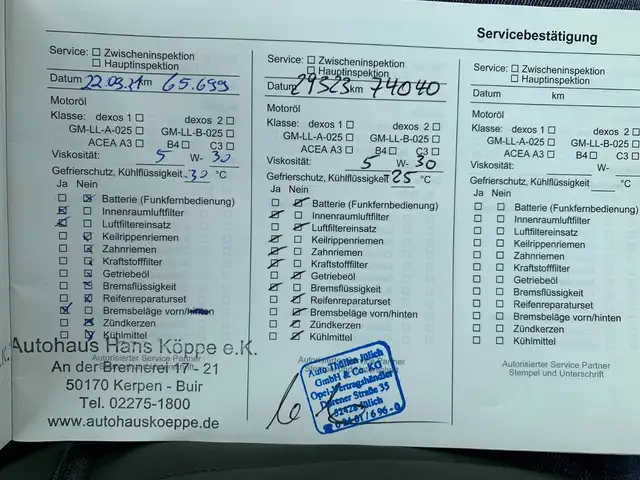 Servicebestätigung
Service: ☐ Zwischeninspektion
☐ Hauptinspektion
Datum 22.09.21 km 65.699
Motoröl
Klasse: dexos 1 ☐ dexos 2 ☐
GM-LL-A-025 ☐ GM-LL-B-025 ☐
ACEA A3 ☐ B4 ☐ C3 ☐
Viskosität: 5 W- 30
Gefrierschutz, Kühlflüssigkeit -30 °C
Ja Nein
Batterie (Funkfernbedienung)
Innenraumluftfilter
Luftfiltereinsatz
Keilrippenriemen
Zahnriemen
Kraftstofffilter
Getriebeöl
Bremsflüssigkeit
Reifenreparaturset
Bremsbeläge vorn/hinten
Zündkerzen
Kühlmittel
Autohaus Hans Köppe e.K.
Autorisierter Service Partner
An der Brennerei 17 - 21
50170 Kerpen - Buir
Tel. 02275-1800
www.autohauskoeppe.de
Service: ☐ Zwischeninspektion
☐ Hauptinspektion
Datum km 74040
Motoröl
Klasse: dexos 1 ☐ dexos 2 ☐
GM-LL-A-025 ☐ GM-LL-B-025 ☐
ACEA A3 ☐ B4 ☐ C3 ☐
Viskosität: 5 W- 30
Gefrierschutz, Kühlflüssigkeit -25 °C
Ja Nein
Batterie (Funkfernbedienung)
Innenraumluftfilter
Luftfiltereinsatz
Keilrippenriemen
Zahnriemen
Kraftstofffilter
Getriebeöl
Bremsflüssigkeit
Reifenreparaturset
Bremsbeläge vorn/hinten
Zündkerzen
Kühlmittel
Auto Thüllen Jülich
GmbH & Co. KG
Opel-Vertragshändler
Dürener Straße 35
52428 Jülich
☎ 02461/696-0
Service: ☐ Zwischeninspektion
☐ Hauptinspektion
Datum km
Motoröl
Klasse: dexos 1 ☐ dexos 2 ☐
GM-LL-A-025 ☐ GM-LL-B-025 ☐
ACEA A3 ☐ B4 ☐ C3 ☐
Viskosität: W-
Gefrierschutz, Kühlflüssigkeit °C
Ja Nein
☐ ☐ Batterie (Funkfernbedienung)
☐ ☐ Innenraumluftfilter
☐ ☐ Luftfiltereinsatz
☐ ☐ Keilrippenriemen
☐ ☐ Zahnriemen
☐ ☐ Kraftstofffilter
☐ ☐ Getriebeöl
☐ ☐ Bremsflüssigkeit
☐ ☐ Reifenreparaturset
☐ ☐ Bremsbeläge vorn/hinten
☐ ☐ Zündkerzen
☐ ☐ Kühlmittel
Autorisierter Service Partner
Stempel und Unterschrift